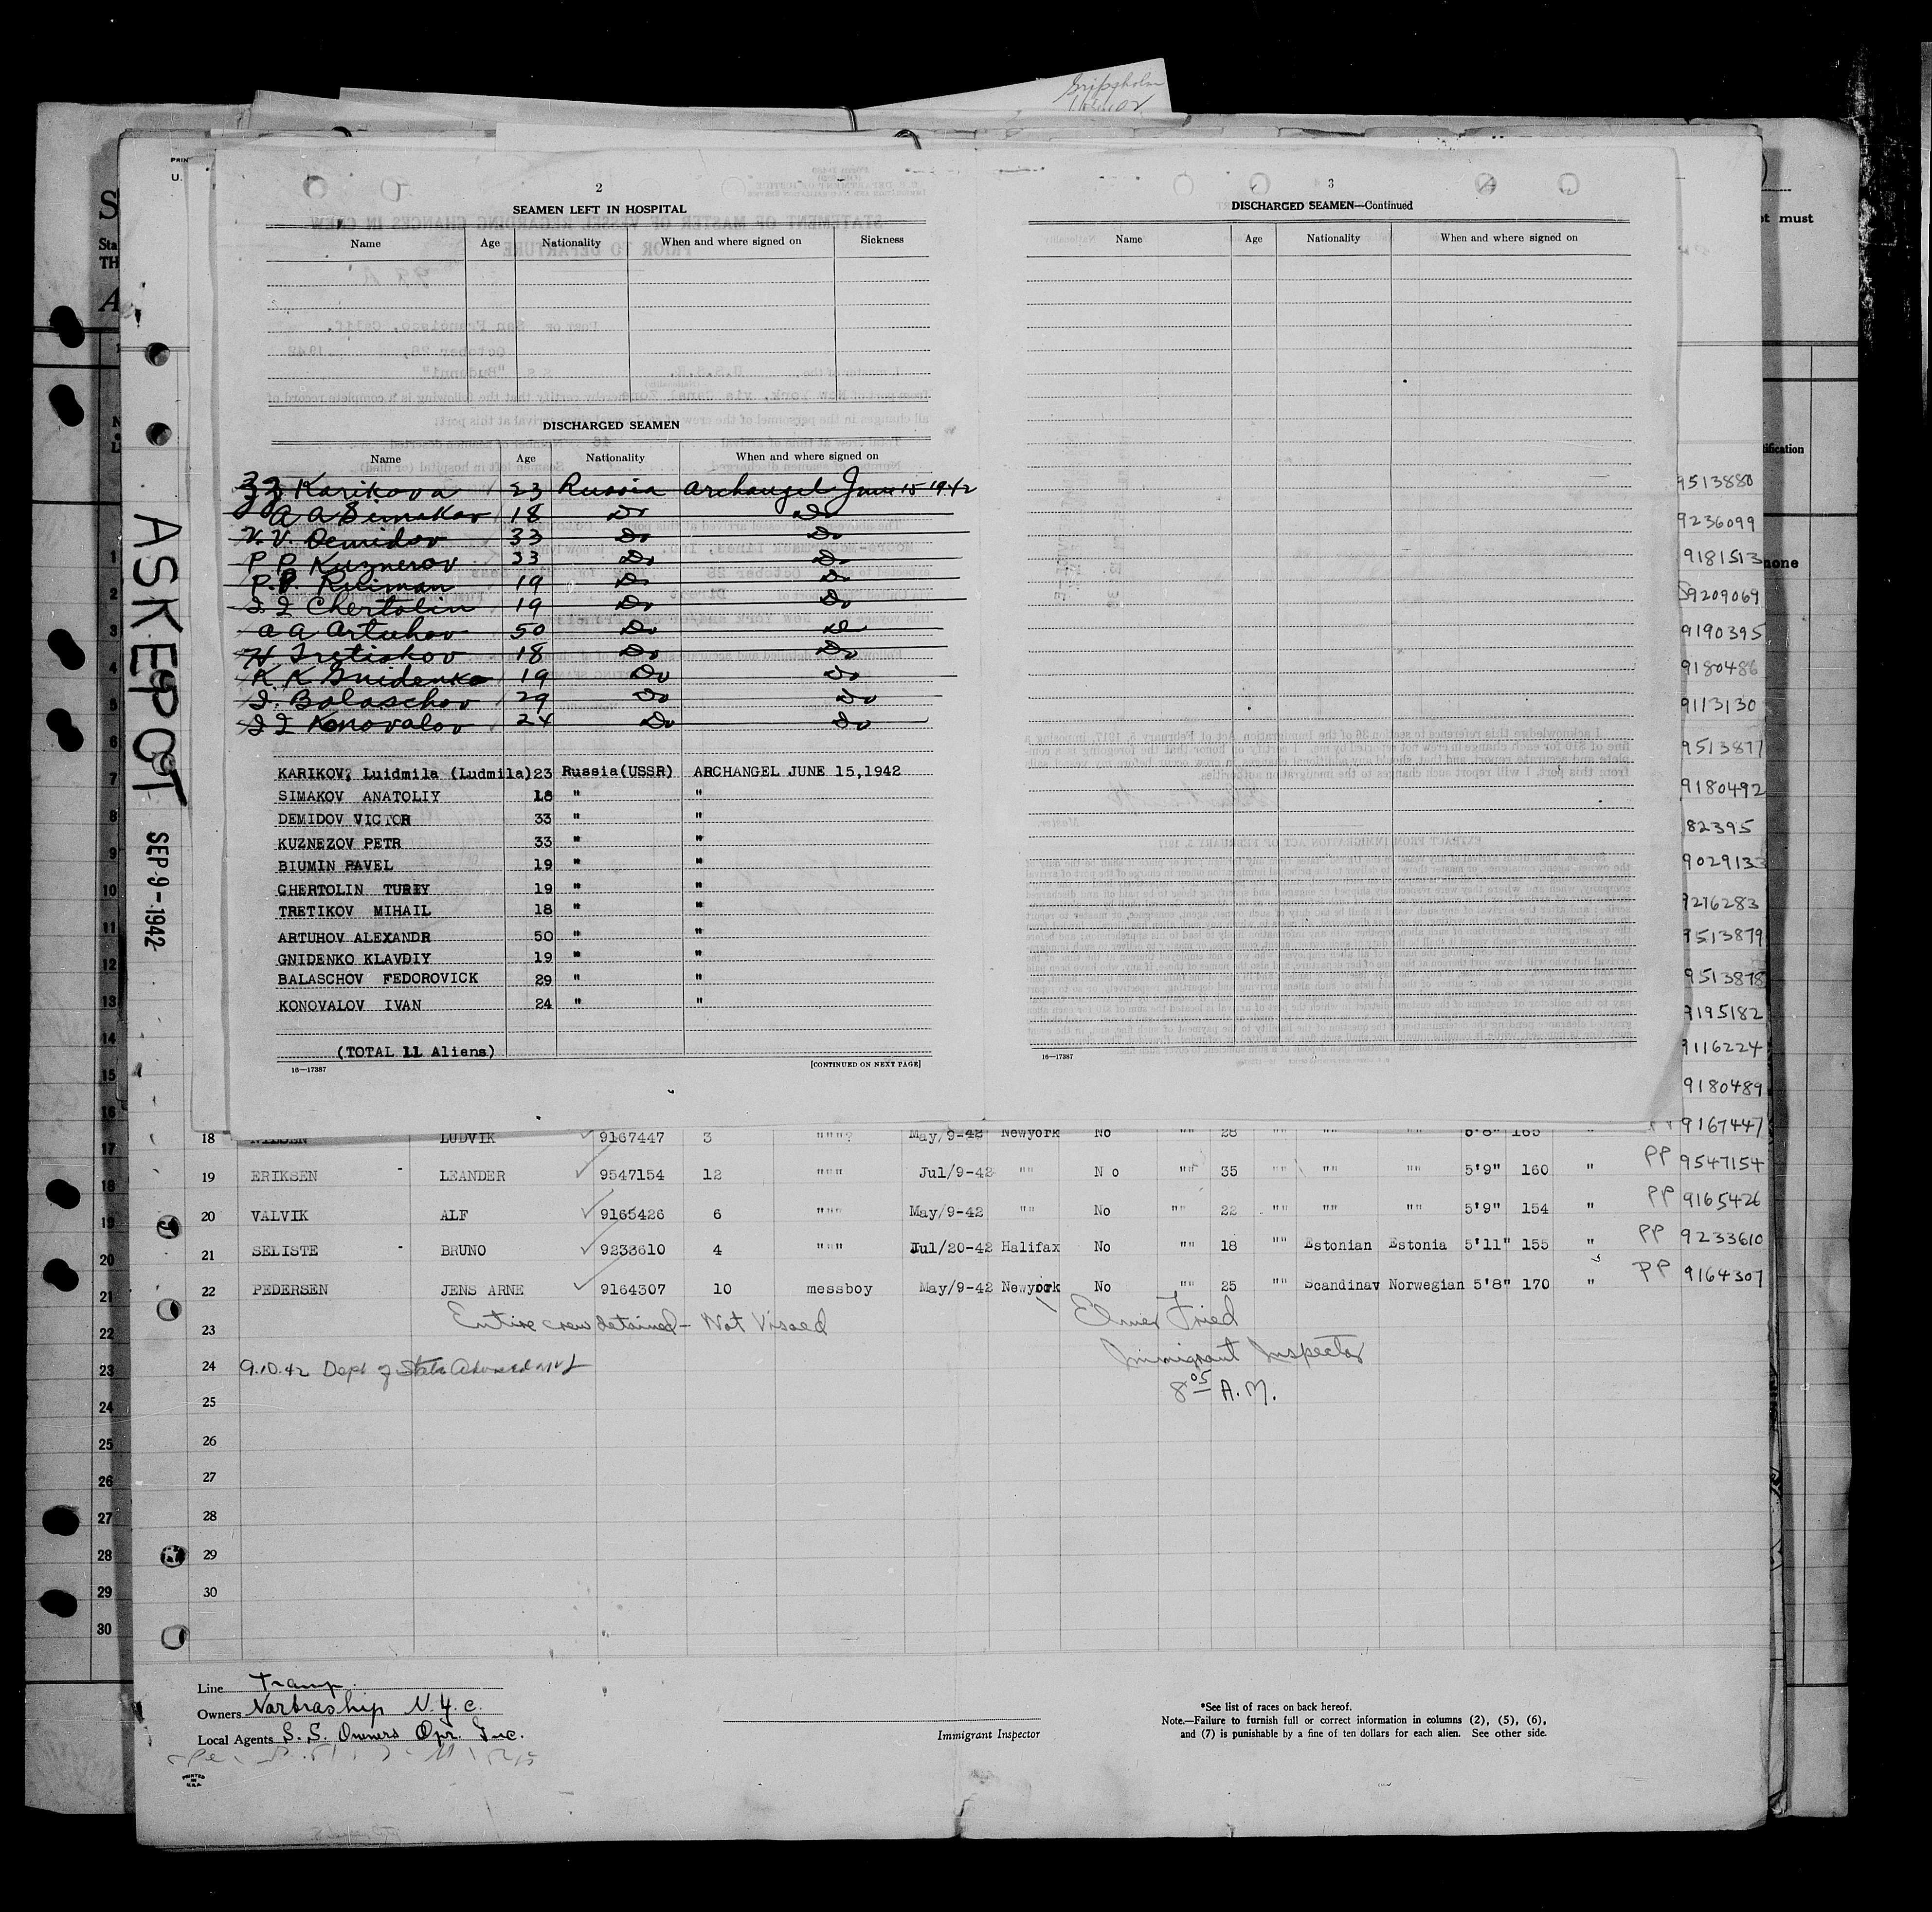 Gripsholm
2
SEAMEN LEFT IN HOSPITAL
Name Age Nationality When and where signed on Sickness
DISCHARGED SEAMEN
Name Age Nationality When and where signed on
Karikova 23 Russia Archangel June 15 1942
A A Simakov 18 Do Do
V. V. Demidov 33 Do Do
P P Kuznerov 33 Do Do
P. P. 19 Do Do
I I Chertolin 19 Do Do
a a Artuhov 50 Do Do
Tretiakov 18 Do Do
K K Gnidenko 19 Do Do
I. Balaschov 29 Do Do
I I Konovalov 24 Do Do
KARIKOV, Luidmila (Ludmila) 23 Russia(USSR) ARCHANGEL JUNE 15,1942
SIMAKOV ANATOLIY 18 " "
DEMIDOV VICTOR 33 " "
KUZNEZOV PETR 33 " "
BIUMIN PAVEL 19 " "
CHERTOLIN TURIY 19 " "
TRETIKOV MIHAIL 18 " "
ARTUHOV ALEXANDR 50 " "
GNIDENKO KLAVDIY 19 " "
BALASCHOV FEDOROVICK 29 " "
KONOVALOV IVAN 24 " "
(TOTAL 11 Aliens)
16—17387 [CONTINUED ON NEXT PAGE]
3
DISCHARGED SEAMEN—Continued
Name Age Nationality When and where signed on
16—17387
ASKEPOT SEP -9 -1942
must
none
9513880
9236099
9181513
9209069
9190395
9180486
9113130
9513877
9180492
82395
9029133
9276283
9513879
9513878
9195182
9116224
9180489
9167447
18 LUDVIK 9167447 3 """? May/9-42 Newyork No "" 28 "" "" ""
19 ERIKSEN LEANDER 9547154 12 """ Jul/9-42 "" No "" 35 "" "" "" 5'9" 160 " PP 9547154
20 VALVIK ALF 9165426 6 """ May/9-42 "" No "" 22 "" "" "" 5'9" 154 " PP 9165426
21 SELISTE BRUNO 9233610 4 """ Jul/20-42 Halifax No "" 18 "" Estonian Estonia 5'11" 155 " PP 9233610
22 PEDERSEN JENS ARNE 9164307 10 messboy May/9-42 Newyork No "" 25 "" Scandinav Norwegian 5'8" 170 " PP 9164307
23 Entire crew detained - Not Vissed Elmer Fried
Immigrant Inspector
24 9.10.42 Dept of State Advised
8 05 A.M.
25
26
27
28
29
30
1
2
3
4
5
6
7
8
9
10
11
12
13
14
15
16
17
18
19
20
21
22
23
24
25
26
27
28
29
30
Line Tramp
Owners Nortraship N.Y.C.
Local Agents S.S. Owners Opr. Inc.
PRINTED IN U.S.A.
Immigrant Inspector
*See list of races on back hereof.
Note.—Failure to furnish full or correct information in columns (2), (5), (6),
and (7) is punishable by a fine of ten dollars for each alien. See other side.